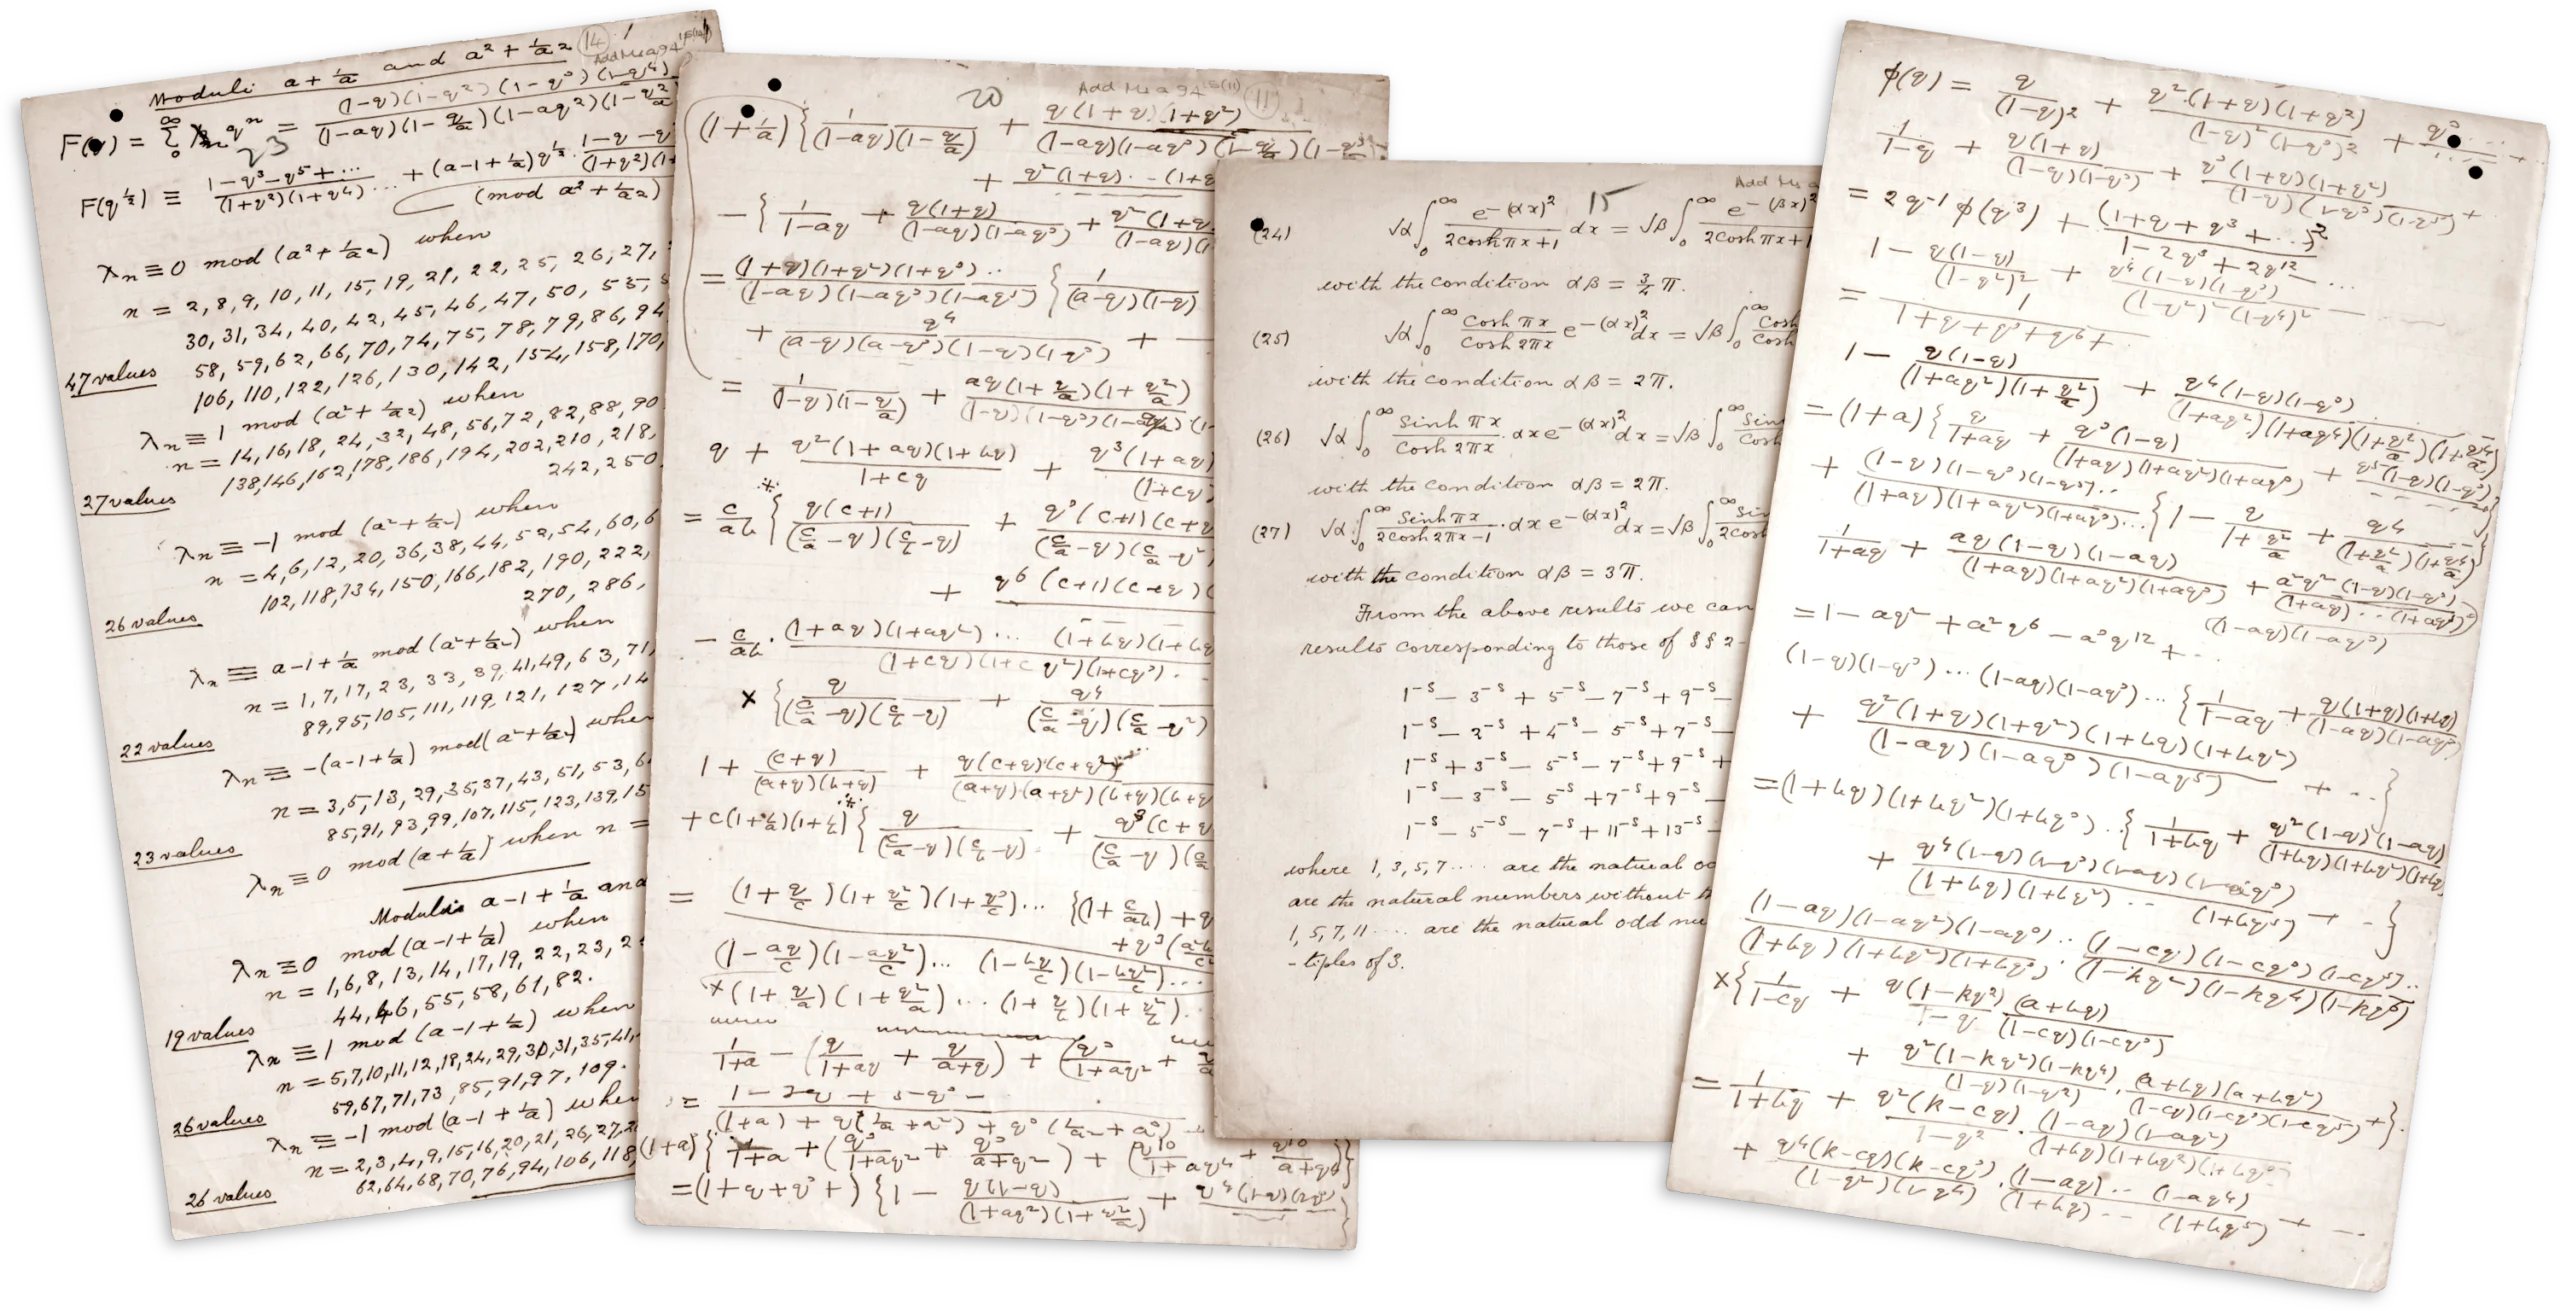 Moduli a + 1/a and a² + 1/a²
14
Add Ms a94
F(q) = Σ₀^∞ λₙ qⁿ = (1-q)(1-q²)(1-q³)(1-q⁴) / (1-aq)(1-q/a)(1-aq²)(1-q²/a)
F(q^½) ≡ 1-q³-q⁵+... / (1+q²)(1+q⁴)... + (a-1+1/a) q^½ · 1-q-q
(mod a² + 1/a²)
λₙ ≡ 0 mod (a² + 1/a²) when
n = 2, 8, 9, 10, 11, 15, 19, 21, 22, 25, 26, 27,
30, 31, 34, 40, 42, 45, 46, 47, 50, 55,
58, 59, 62, 66, 70, 74, 75, 78, 79, 86, 94
47 values
106, 110, 122, 126, 130, 142, 154, 158, 170,
λₙ ≡ 1 mod (a² + 1/a²) when
n = 14, 16, 18, 24, 32, 48, 56, 72, 82, 88, 90
138, 146, 162, 178, 186, 194, 202, 210, 218,
27 values
242, 250
λₙ ≡ -1 mod (a² + 1/a²) when
n = 4, 6, 12, 20, 36, 38, 44, 52, 54, 60, 6
102, 118, 134, 150, 166, 182, 190, 222,
26 values
270, 286,
λₙ ≡ a-1+1/a mod (a² + 1/a²) when
n = 1, 7, 17, 23, 33, 39, 41, 49, 63, 71,
89, 95, 105, 111, 119, 121, 127, 14
22 values
λₙ ≡ -(a-1+1/a) mod (a² + 1/a²) when
n = 3, 5, 13, 29, 35, 37, 43, 51, 53, 6
85, 91, 93, 99, 107, 115, 123, 139, 15
23 values
λₙ ≡ 0 mod (a + 1/a) when n =
Modulus a-1+1/a and
λₙ ≡ 0 mod (a-1+1/a) when
n = 1, 6, 8, 13, 14, 17, 19, 22, 23, 2
44, 46, 55, 58, 61, 82.
19 values
λₙ ≡ 1 mod (a-1+1/a) when
n = 5, 7, 10, 11, 12, 18, 24, 29, 30, 31, 35, 41,
59, 67, 71, 73, 85, 91, 97, 109.
26 values
λₙ ≡ -1 mod (a-1+1/a) when
n = 2, 3, 4, 9, 15, 16, 20, 21, 26, 27, 2
62, 64, 68, 70, 76, 94, 106, 118,
26 values
20
Add Ms a94
11
(1+1/a) { 1/(1-aq)(1-q/a) + q(1+q)(1+q²) / (1-aq)(1-aq³)(1-q/a)(1-q³/a)
+ q²(1+q)...(1+q
- { 1/1-aq + q(1+q)/(1-aq)(1-aq³) + q²(1+q / (1-aq)(1
= (1+q)(1+q²)(1+q³).. / (1-aq)(1-aq³)(1-aq⁵) { 1/(a-q)(1-q)
+ q⁴/(a-q)(a-q³)(1-q)(1-q³) + —
= 1/(1-q)(1-q/a) + aq(1+q/a)(1+q²/a) /
q + q²(1+aq)(1+bq)/1+cq + q³(1+aq) / (1+cq
= c/ab { q(c+1)/(c/a-q)(c/b-q) + q³(c+1)(c+q / (c/a-q)(c/a-q²
+ q⁶(c+1)(c+q)(
- c/ab · (1+aq)(1+aq²)... (1+bq)(1+bq / (1+cq)(1+cq²)(1+cq³).
× { q/(c/a-q)(c/b-q) + q⁴/(c/a-q)(c/a-q²)
1 + (c+q)/(a+q)(b+q) + q(c+q)(c+q²)/(a+q)(a+q²)(b+q)(b+q
+ c(1+1/a)(1+1/b) { q/(c/a-q)(c/b-q) + q³(c+q / (c/a-q)(c/a
= (1+q/c)(1+q²/c)(1+q³/c)... {(1+c/ab) + q
(1-aq/c)(1-aq²/c)... (1-bq/c)(1-bq²/c)...
× (1+q/a)(1+q²/a)... (1+q/b)(1+q²/b).
1/1+a - (q/1+aq + q/a+q) + (q³/1+aq² +
= 1-3q+5q³- / (1+a) + q(1/a+a²) + q³(1/a²+a³)
(1+a) { 1/1+a + (q³/1+aq² + q³/a+q²) + (q¹⁰/1+aq⁴ + q¹⁰/a+q⁴)}
= (1+q+q³+) {1 - q(1-q)/(1+aq²)(1+q²/a) + q⁴(1-q)(1-q³)
15
Add Ms a
(24) √α ∫₀^∞ e^-(αx)² / 2coshπx+1 dx = √β ∫₀^∞ e^-(βx)² / 2coshπx+1
with the condition αβ = ¾π.
(25) √α ∫₀^∞ coshπx/cosh2πx e^-(αx)² dx = √β ∫₀^∞ cosh / cosh
with the condition αβ = 2π.
(26) √α ∫₀^∞ sinhπx/cosh2πx · αx e^-(αx)² dx = √β ∫₀^∞ sin / cosh
with the condition αβ = 2π.
(27) √α ∫₀^∞ sinhπx/2cosh2πx-1 · αx e^-(αx)² dx = √β ∫₀^∞ sin / 2cosh
with the condition αβ = 3π.
From the above results we can
results corresponding to those of §§ 2-
1^-s - 3^-s + 5^-s - 7^-s + 9^-s -
1^-s - 2^-s + 4^-s - 5^-s + 7^-s -
1^-s + 3^-s - 5^-s - 7^-s + 9^-s +
1^-s - 3^-s - 5^-s + 7^-s + 9^-s -
1^-s - 5^-s - 7^-s + 11^-s + 13^-s -
where 1, 3, 5, 7 .... are the natural od
are the natural numbers without
1, 5, 7, 11 .... are the natural odd nu
-tiples of 3.
φ(q) = q/(1-q)² + q²(1+q)(1+q²)/(1-q)²(1-q³)² + q³.... +
1/1-q + q(1+q)/(1-q)(1-q³) + q³(1+q)(1+q²)/(1-q)(1-q³)(1-q⁵) +
= 2q⁻¹φ(q³) + (1+q+q³+...)²/1-2q³+2q¹² ...
1 - q(1-q)/(1-q²)² + q⁴(1-q)(1-q³)/(1-q²)²(1-q⁴)² - ...
= 1/1+q+q³+q⁶+
1 - q(1-q)/(1+aq²)(1+q²/a) + q⁴(1-q)(1-q³)/(1+aq²)(1+aq⁴)(1+q²/a)(1+q⁴/a)
= (1+a) { q/1+aq + q³(1-q)/(1+aq)(1+aq²)(1+aq³) + q⁵(1-q)(1-q³) }
+ (1-q)(1-q³)(1-q⁵)../(1+aq)(1+aq²)(1+aq³)... {1 - q/1+q²/a + q⁴/(1+q²/a)(1+q⁴/a)}
1/1+aq + aq(1-q)(1-aq)/(1+aq)(1+aq²)(1+aq³) + a²q²(1-q)(1-q³)(1-aq)(1-aq³)/(1+aq)...(1+aq⁵)
= 1 - aq² + a²q⁶ - a³q¹² + ..
(1-q)(1-q³)... (1-aq)(1-aq³)... { 1/1-aq + q(1+q)(1+bq)/(1-aq)(1-aq³)
+ q²(1+q)(1+q²)(1+bq)(1+bq²)/(1-aq)(1-aq³)(1-aq⁵) + ... }
= (1+bq)(1+bq²)(1+bq³).. { 1/1+bq + q²(1-q)(1-aq)/(1+bq)(1+bq²)(1+bq
+ q⁴(1-q)(1-q³)(1-aq)(1-aq³)/(1+bq)(1+bq²)... (1+bq⁵) + .. }
(1-aq)(1-aq²)(1-aq³)../(1+bq)(1+bq²)(1+bq³). · (1-cq)(1-cq³)(1-cq⁵)../(1-kq²)(1-kq⁴)(1-kq⁶)
× { 1/1-cq + q(1-kq²)/1-q (a+bq)/(1-cq)(1-cq³)
+ q²(1-kq²)(1-kq⁴)/(1-q)(1-q²) · (a+bq)(a+bq²)/(1-cq)(1-cq³)(1-cq⁵) + }.
= 1/1+bq + q²(k-cq)/1-q² · (1-aq)(1-aq²)/(1+bq)(1+bq²)(1+bq³
+ q⁴(k-cq)(k-cq³)/(1-q²)(1-q⁴) · (1-aq)...(1-aq⁴)/(1+bq)...(1+bq⁵) + ...